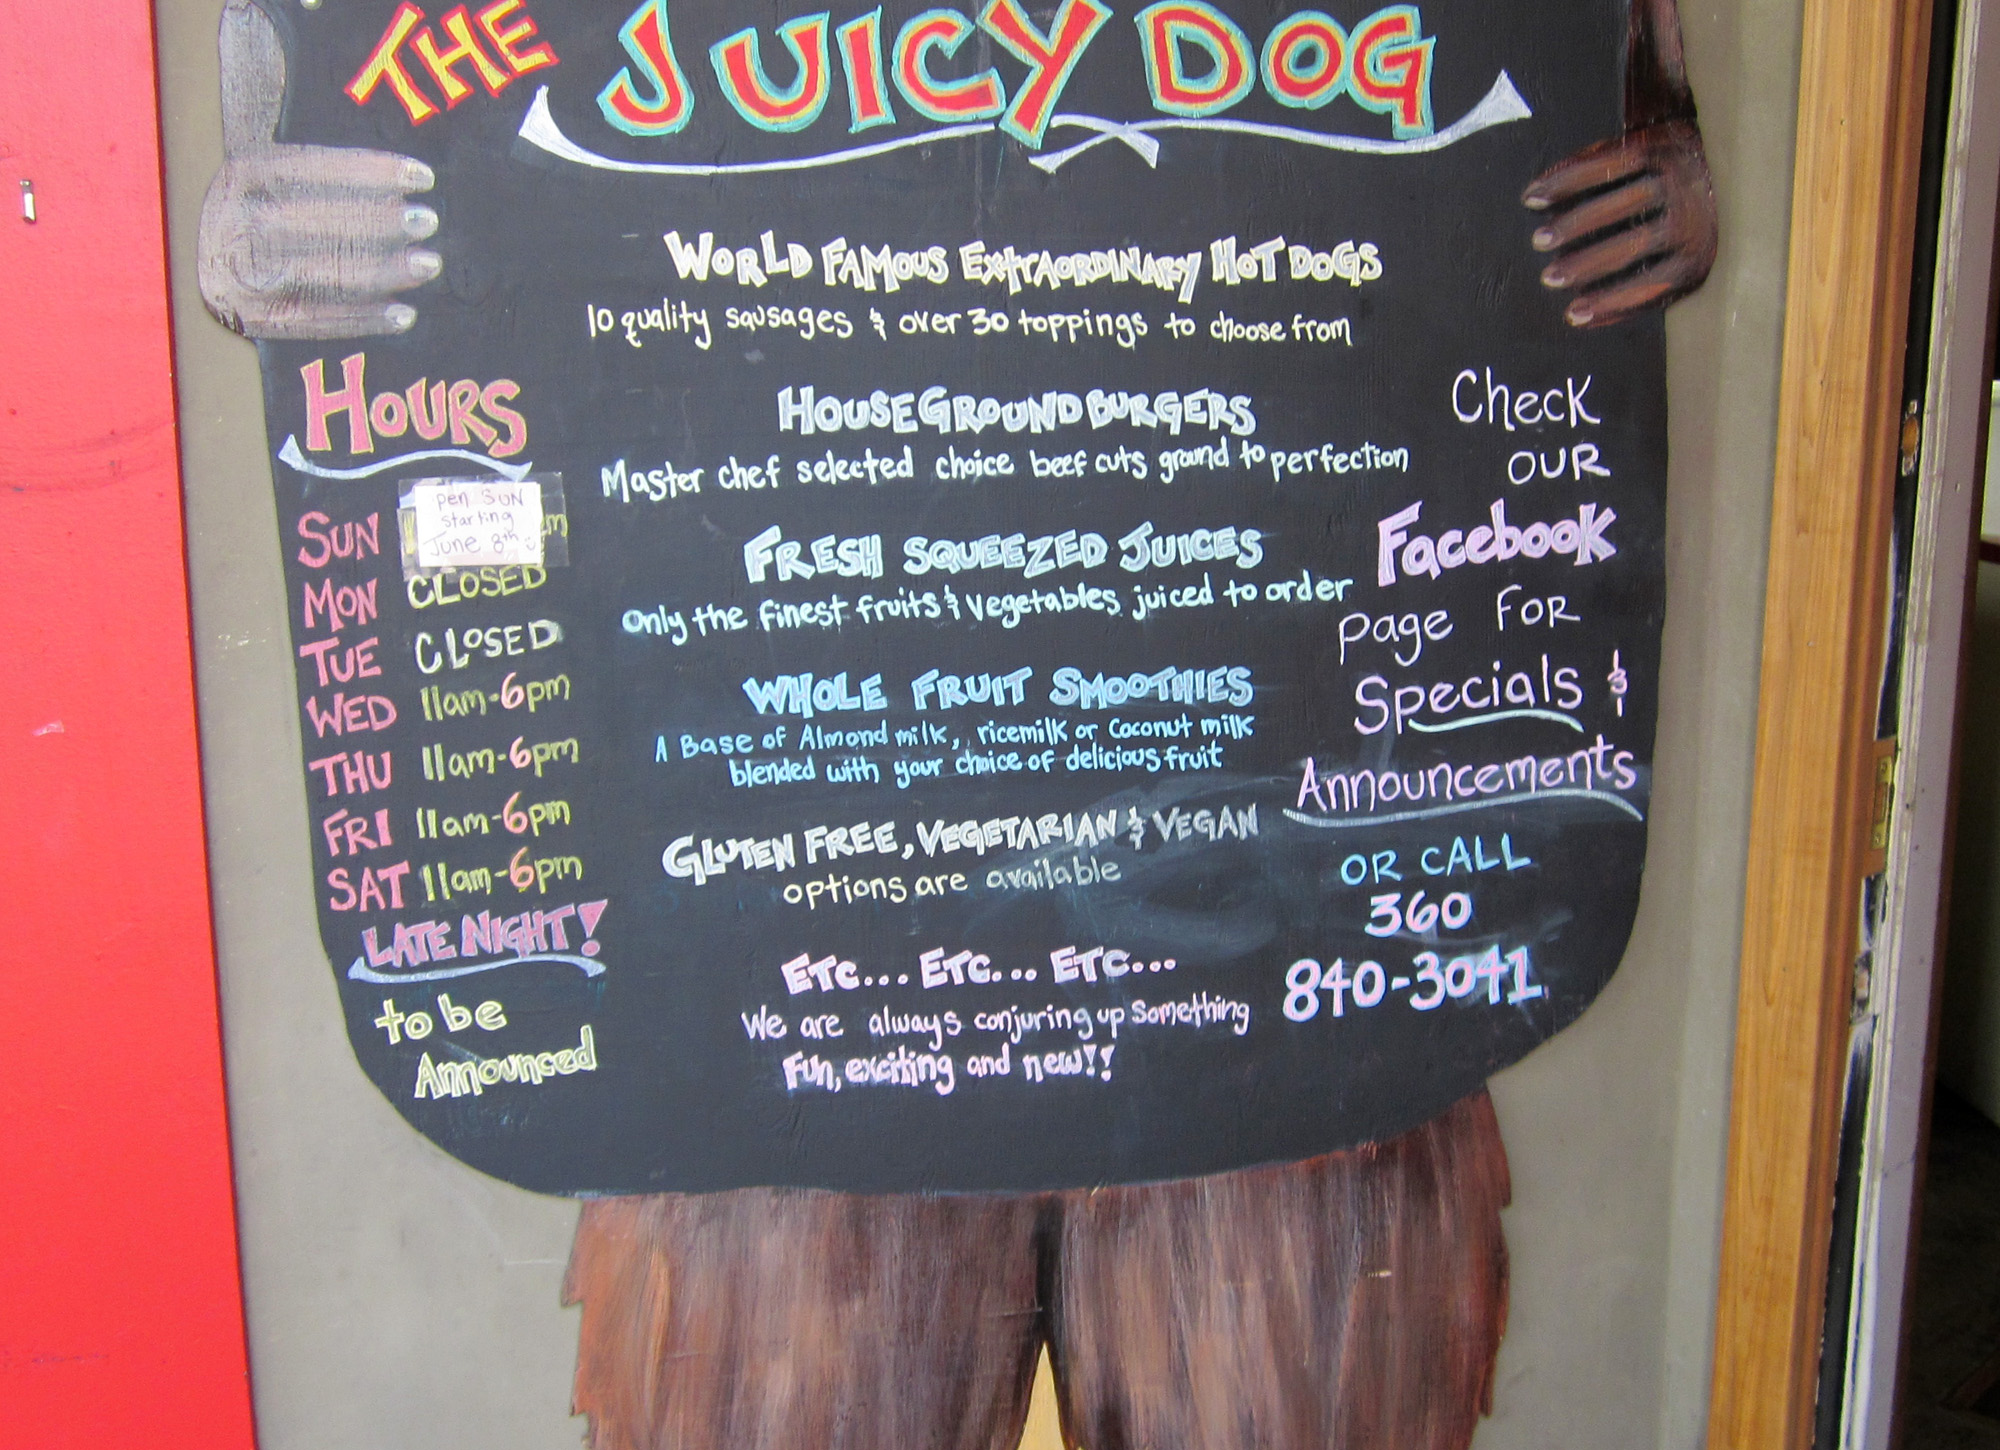 THE JUICY DOG
WORLD FAMOUS EXTRAORDINARY HOT DOGS
10 quality sausages & over 30 toppings to choose from
HOUSE GROUND BURGERS
Master chef selected choice beef cuts ground to perfection
FRESH SQUEEZED JUICES
Only the finest fruits & vegetables juiced to order
WHOLE FRUIT SMOOTHIES
A Base of Almond milk, ricemilk or Coconut milk
blended with your choice of delicious fruit
GLUTEN FREE, VEGETARIAN & VEGAN
options are available
ETC... ETC... ETC...
We are always conjuring up something
Fun, exciting and new!!
HOURS
SUN
pen SUN
starting
June 8th
MON CLOSED
TUE CLOSED
WED 11am-6pm
THU 11am-6pm
FRI 11am-6pm
SAT 11am-6pm
LATE NIGHT!
to be
Announced
Check
OUR
Facebook
page FOR
Specials &
Announcements
OR CALL
360
840-3041